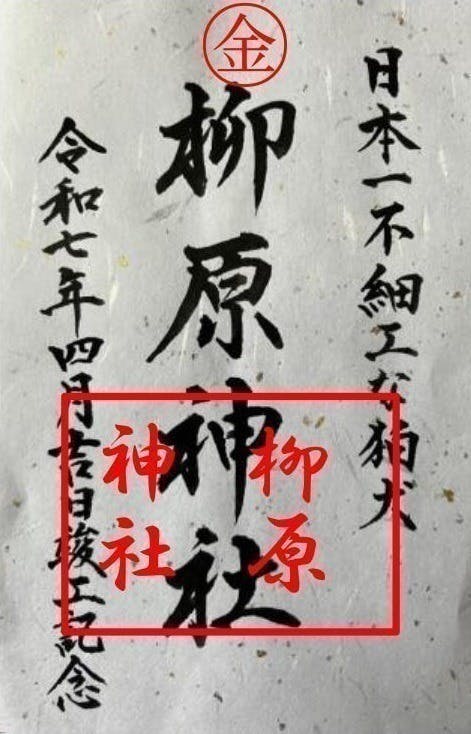 金
日本一不細工な狛犬
柳原神社
令和七年四月吉日竣工記念
柳原
神社